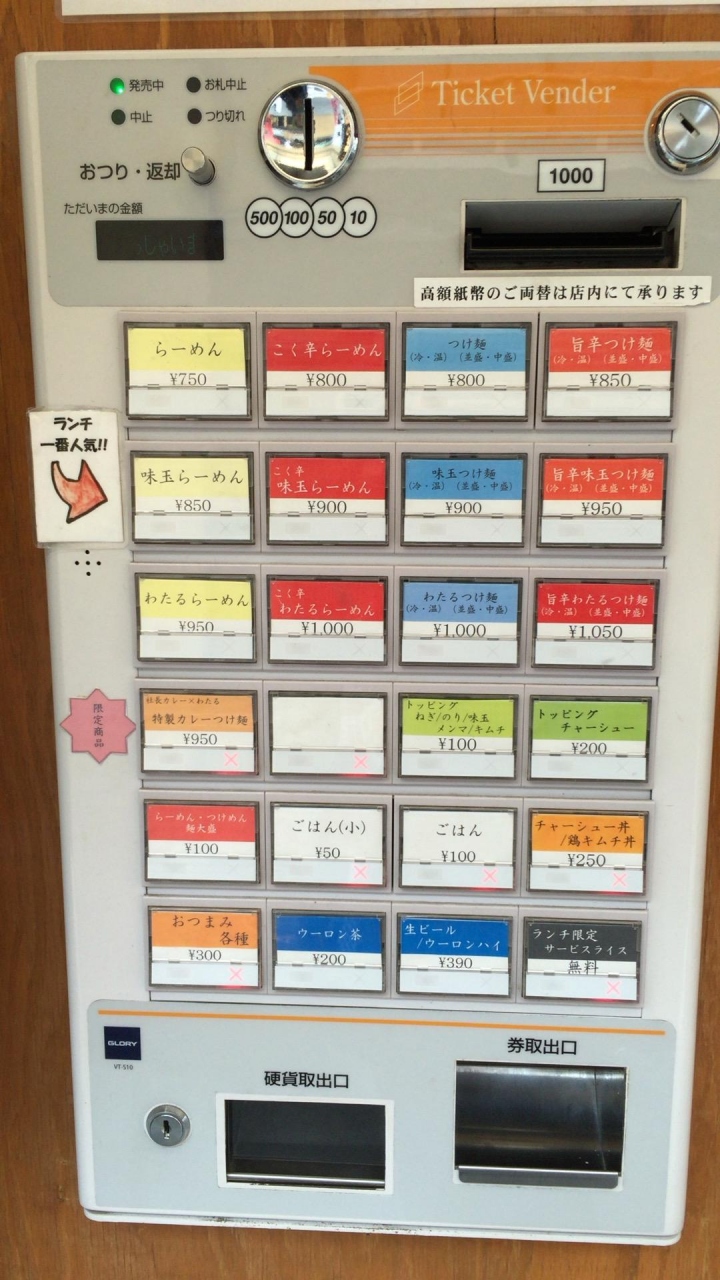 発売中
お札中止
中止
つり切れ
Ticket Vender
おつり・返却
1000
ただいまの金額
500 100 50 10
高額紙幣のご両替は店内にて承ります
らーめん
¥750
こく辛らーめん
¥800
つけ麺
(冷・温) (並盛・中盛)
¥800
旨辛つけ麺
(冷・温) (並盛・中盛)
¥850
ランチ
一番人気!!
味玉らーめん
¥850
こく辛
味玉らーめん
¥900
味玉つけ麺
(冷・温) (並盛・中盛)
¥900
旨辛味玉つけ麺
(冷・温) (並盛・中盛)
¥950
わたるらーめん
¥950
こく辛
わたるらーめん
¥1,000
わたるつけ麺
(冷・温) (並盛・中盛)
¥1,000
旨辛わたるつけ麺
(冷・温) (並盛・中盛)
¥1,050
限定商品
社長カレー×わたる
特製カレーつけ麺
¥950
トッピング
ねぎ/のり/味玉
メンマ/キムチ
¥100
トッピング
チャーシュー
¥200
らーめん・つけめん
麺大盛
¥100
ごはん(小)
¥50
ごはん
¥100
チャーシュー丼
/鶏キムチ丼
¥250
おつまみ
各種
¥300
ウーロン茶
¥200
生ビール
/ウーロンハイ
¥390
ランチ限定
サービスライス
無料
GLORY
VT-S10
硬貨取出口
券取出口